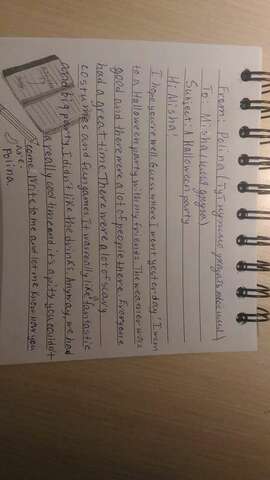 From: Polina
To: Misha
Subject: A Halloween party
Hi Misha!
I hope you're well. Guess where I went yesterday! I went
to a Halloween party with my friends. The weather was
good and there were a lot of people there. Everyone
had a great time. There were a lot of scary
costumes and four games. It was really like fantastic
and big party. I didn't like the drinks. Anyway, we had
a really good time and it's a pity you couldn't
come. Write to me and let me know how you
are.
Polina.